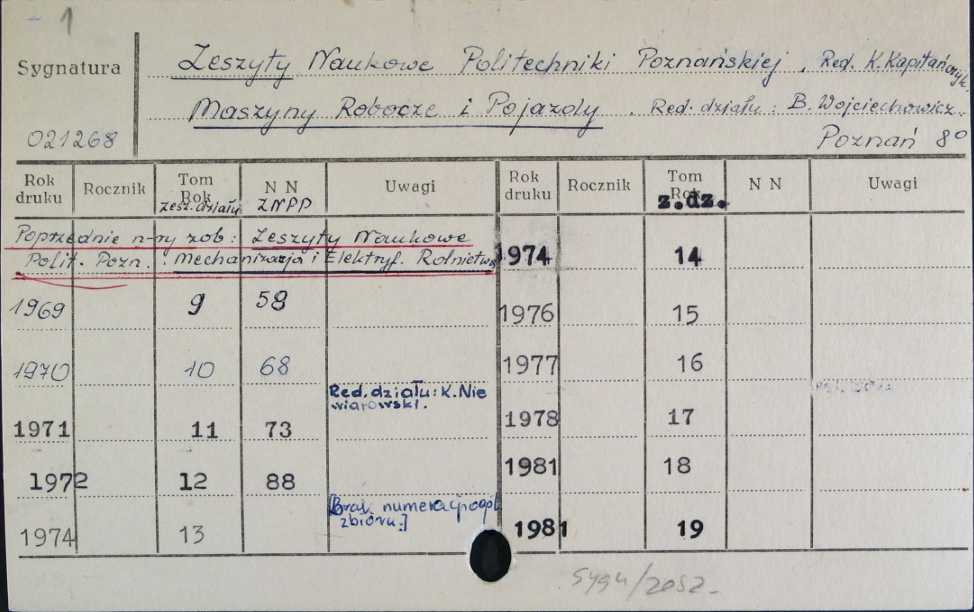 1
Sygnatura
021268
Zeszyty Naukowe Politechniki Poznańskiej, Red. K. Kapitańczyk.
Maszyny Robocze i Pojazdy. Red. działu: B. Wojciechowicz.
Poznań 8°
Rok druku Rocznik Tom Rok zesz. działu N N ZNPP Uwagi Rok druku Rocznik Tom Rok z.dz. N N Uwagi
Poprzednie n-ry zob: Zeszyty Naukowe
Polit. Pozn.: Mechanizacja i Elektryf. Rolnictwa
1969 9 58
1970 10 68
Red. działu: K. Nie
wiarowski.
1971 11 73
1972 12 88
[Brak numeracji ogól
zbioru.]
1974 13
1974 14
1976 15
1977 16
1978 17
1981 18
1981 19
sygn/2052